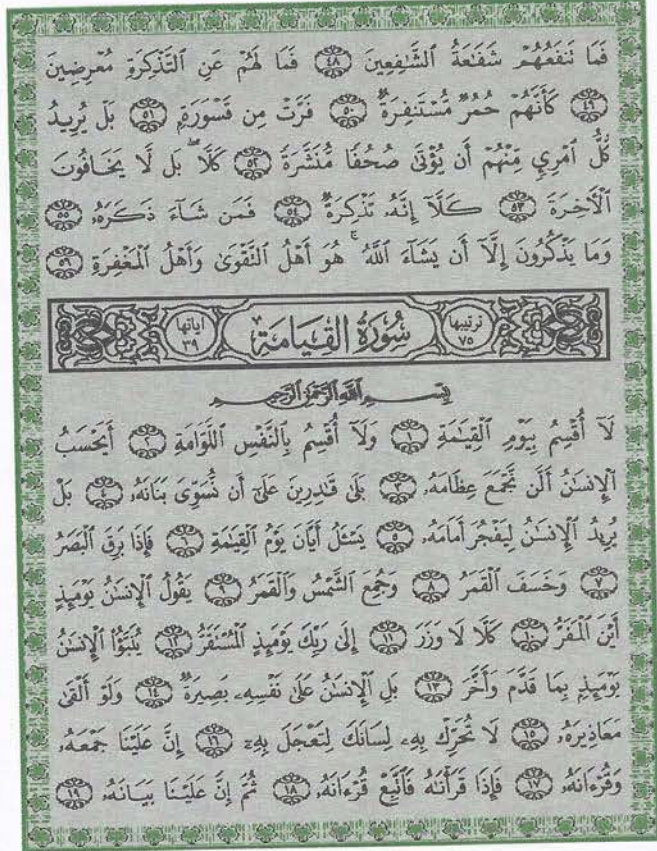 فَمَا نَنفَعُهُمْ شَفَاعَةُ الشَّافِعِينَ ٤٨ فَمَا لَهُمْ عَنِ التَّذْكِرَةِ مُعْرِضِينَ
٤٩ كَأَنَّهُمْ حُمُرٌ مُّسْتَنفِرَةٌ ٥٠ فَرَّتْ مِن قَسْوَرَةٍ ٥١ بَلْ يُرِيدُ
كُلُّ امْرِئٍ مِّنْهُمْ أَن يُؤْتَىٰ صُحُفًا مُّنَشَّرَةً ٥٢ كَلَّا ۖ بَل لَّا يَخَافُونَ
الْآخِرَةَ ٥٣ كَلَّا إِنَّهُ تَذْكِرَةٌ ٥٤ فَمَن شَاءَ ذَكَرَهُ ٥٥
وَمَا يَذْكُرُونَ إِلَّا أَن يَشَاءَ اللَّهُ ۚ هُوَ أَهْلُ التَّقْوَىٰ وَأَهْلُ الْمَغْفِرَةِ ٥٦
ترتيبها ٧٥ سُورَةُ الْقِيَامَةِ آياتها ٣٩
بِسْمِ اللَّهِ الرَّحْمَٰنِ الرَّحِيمِ
لَا أُقْسِمُ بِيَوْمِ الْقِيَامَةِ ١ وَلَا أُقْسِمُ بِالنَّفْسِ اللَّوَّامَةِ ٢ أَيَحْسَبُ
الْإِنسَانُ أَلَّن نَّجْمَعَ عِظَامَهُ ٣ بَلَىٰ قَادِرِينَ عَلَىٰ أَن نُّسَوِّيَ بَنَانَهُ ٤ بَلْ
يُرِيدُ الْإِنسَانُ لِيَفْجُرَ أَمَامَهُ ٥ يَسْأَلُ أَيَّانَ يَوْمُ الْقِيَامَةِ ٦ فَإِذَا بَرِقَ الْبَصَرُ
٧ وَخَسَفَ الْقَمَرُ ٨ وَجُمِعَ الشَّمْسُ وَالْقَمَرُ ٩ يَقُولُ الْإِنسَانُ يَوْمَئِذٍ
أَيْنَ الْمَفَرُّ ١٠ كَلَّا لَا وَزَرَ ١١ إِلَىٰ رَبِّكَ يَوْمَئِذٍ الْمُسْتَقَرُّ ١٢ يُنَبَّأُ الْإِنسَانُ
يَوْمَئِذٍ بِمَا قَدَّمَ وَأَخَّرَ ١٣ بَلِ الْإِنسَانُ عَلَىٰ نَفْسِهِ بَصِيرَةٌ ١٤ وَلَوْ أَلْقَىٰ
مَعَاذِيرَهُ ١٥ لَا تُحَرِّكْ بِهِ لِسَانَكَ لِتَعْجَلَ بِهِ ١٦ إِنَّ عَلَيْنَا جَمْعَهُ
وَقُرْآنَهُ ١٧ فَإِذَا قَرَأْنَاهُ فَاتَّبِعْ قُرْآنَهُ ١٨ ثُمَّ إِنَّ عَلَيْنَا بَيَانَهُ ١٩